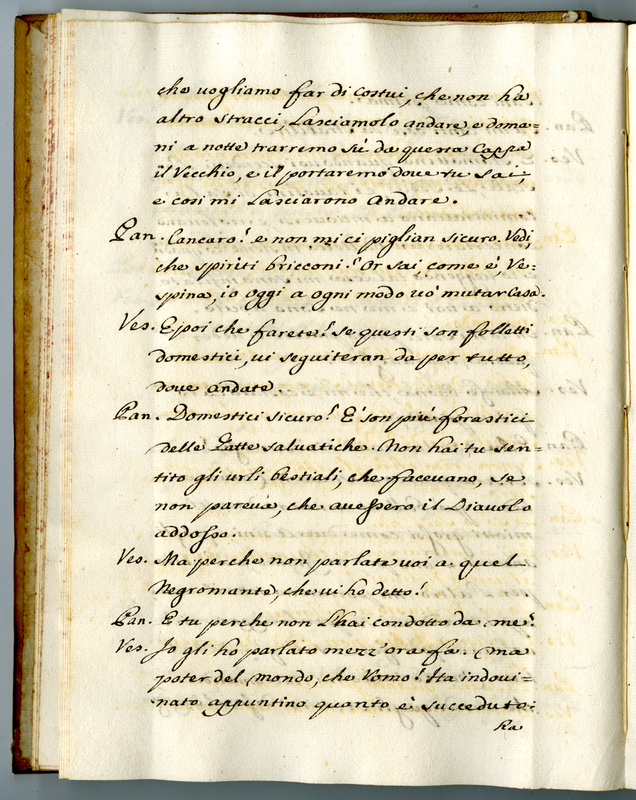 che vogliamo far di costui, che non ha
altro stracci, Lasciamolo andare, e doma=
ni a notte trarremo sù da questa Cappa
il Vecchio, e il portaremo dove tu sai;
e così mi Lasciarono andare.
Pan. Cancaro! e non mi ci piglian sicuro. Vedi,
che spiriti bricconi! Or sai, come è, Ve=
spina, io oggi a ogni modo vò mutar Casa.
Ves. E poi che farete? se questi son folletti
domestici, vi seguiteran da per tutto,
dove andate
Pan. Domestici sicuro! E' son più forastici
delle Gatte salvatiche. Non hai tu sen=
tito gli urli bestiali, che facevano, se
non pareva, che avessero il Diavolo
addosso.
Ves. Ma perche non parlate voi a quel
Negromante, che vi ho detto?
Pan. E tu perche non L'hai condotto da me?
Ves. Io gli ho parlato mezz'ora fa. ma
poter del mondo, che Vomo! Ha indovi=
nato appuntino quanto è succeduto:
Ha